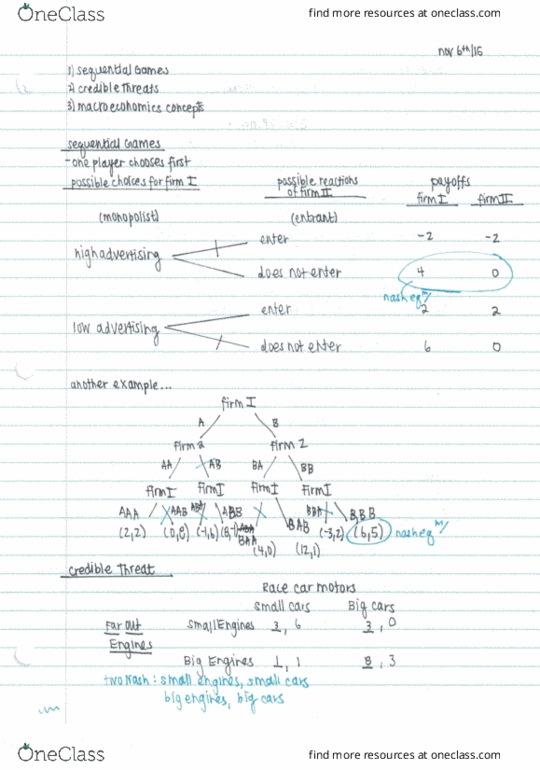 OneClass find more resources at oneclass.com
nov 6th/16
1) sequential Games
2) credible Threats
3) macroeconomics concepts
sequential Games
- one player chooses first
possible choices for firm I possible reactions of firm II payoffs
firm I firm II
(monopolist) (entrant)
high advertising enter -2 -2
does not enter 4 0
nash eq
low advertising enter 2 2
does not enter 6 0
another example...
firm I
A B
firm 2 firm 2
AA AB BA BB
firm I firm I firm I firm I
AAA AAB ABB BAA BAB BBB
(2,2) (-1,6) (4,0) (12,1) (-3,2) (6,5) nash eq
Credible Threat
Race car motors
small cars Big cars
Far Out Engines
Small Engines 3, 6 3, 0
Big Engines 1, 1 8, 3
two Nash: small engines, small cars
big engines, big cars
OneClass find more resources at oneclass.com